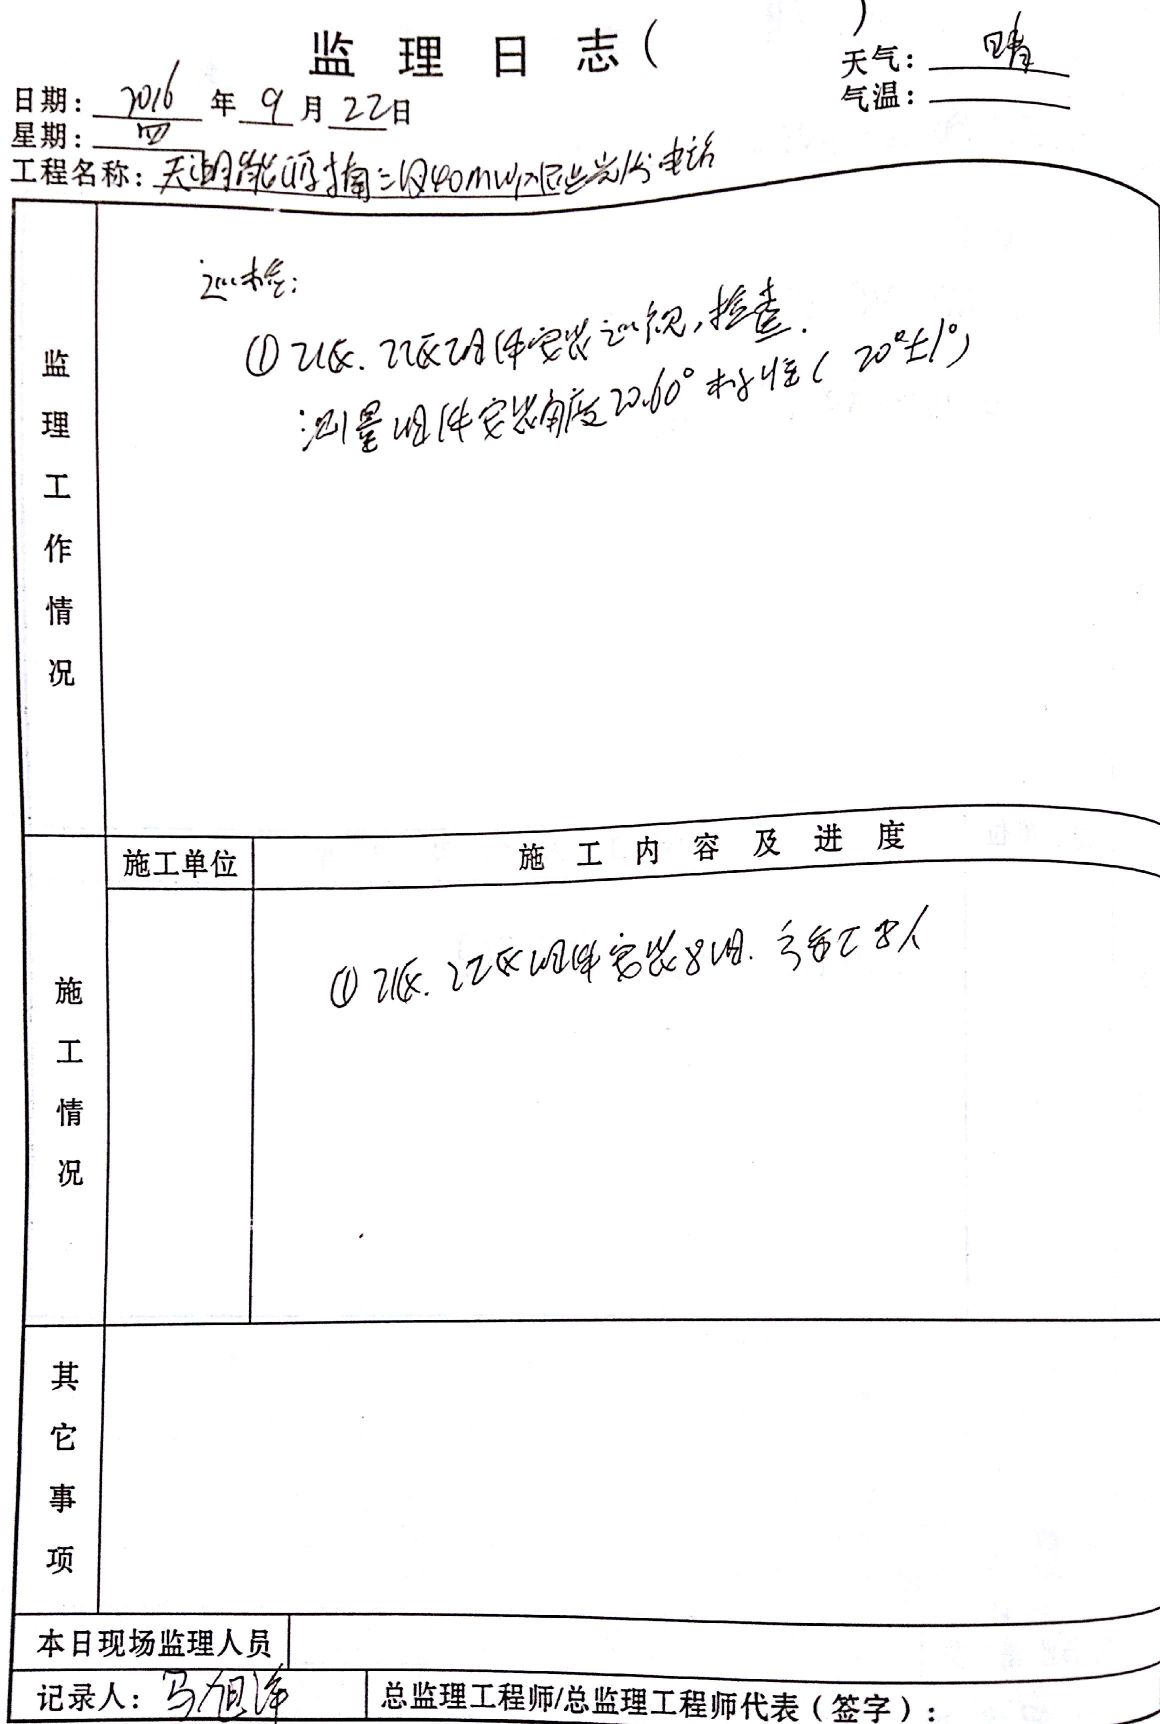 监理日志（ ）
天气：晴
日期：2016年9月22日
气温：
星期：四
工程名称：天湖能源 三 40MWp 光伏电站
监理工作情况
巡检：
①21区、22区组件安装巡视，检查.
测量组件安装角度20.60° 标准（20°±1°）
施工单位
施工内容及进度
施工情况
①21区、22区组件安装8组. 8人
其它事项
本日现场监理人员
记录人：马旭泽
总监理工程师/总监理工程师代表（签字）：